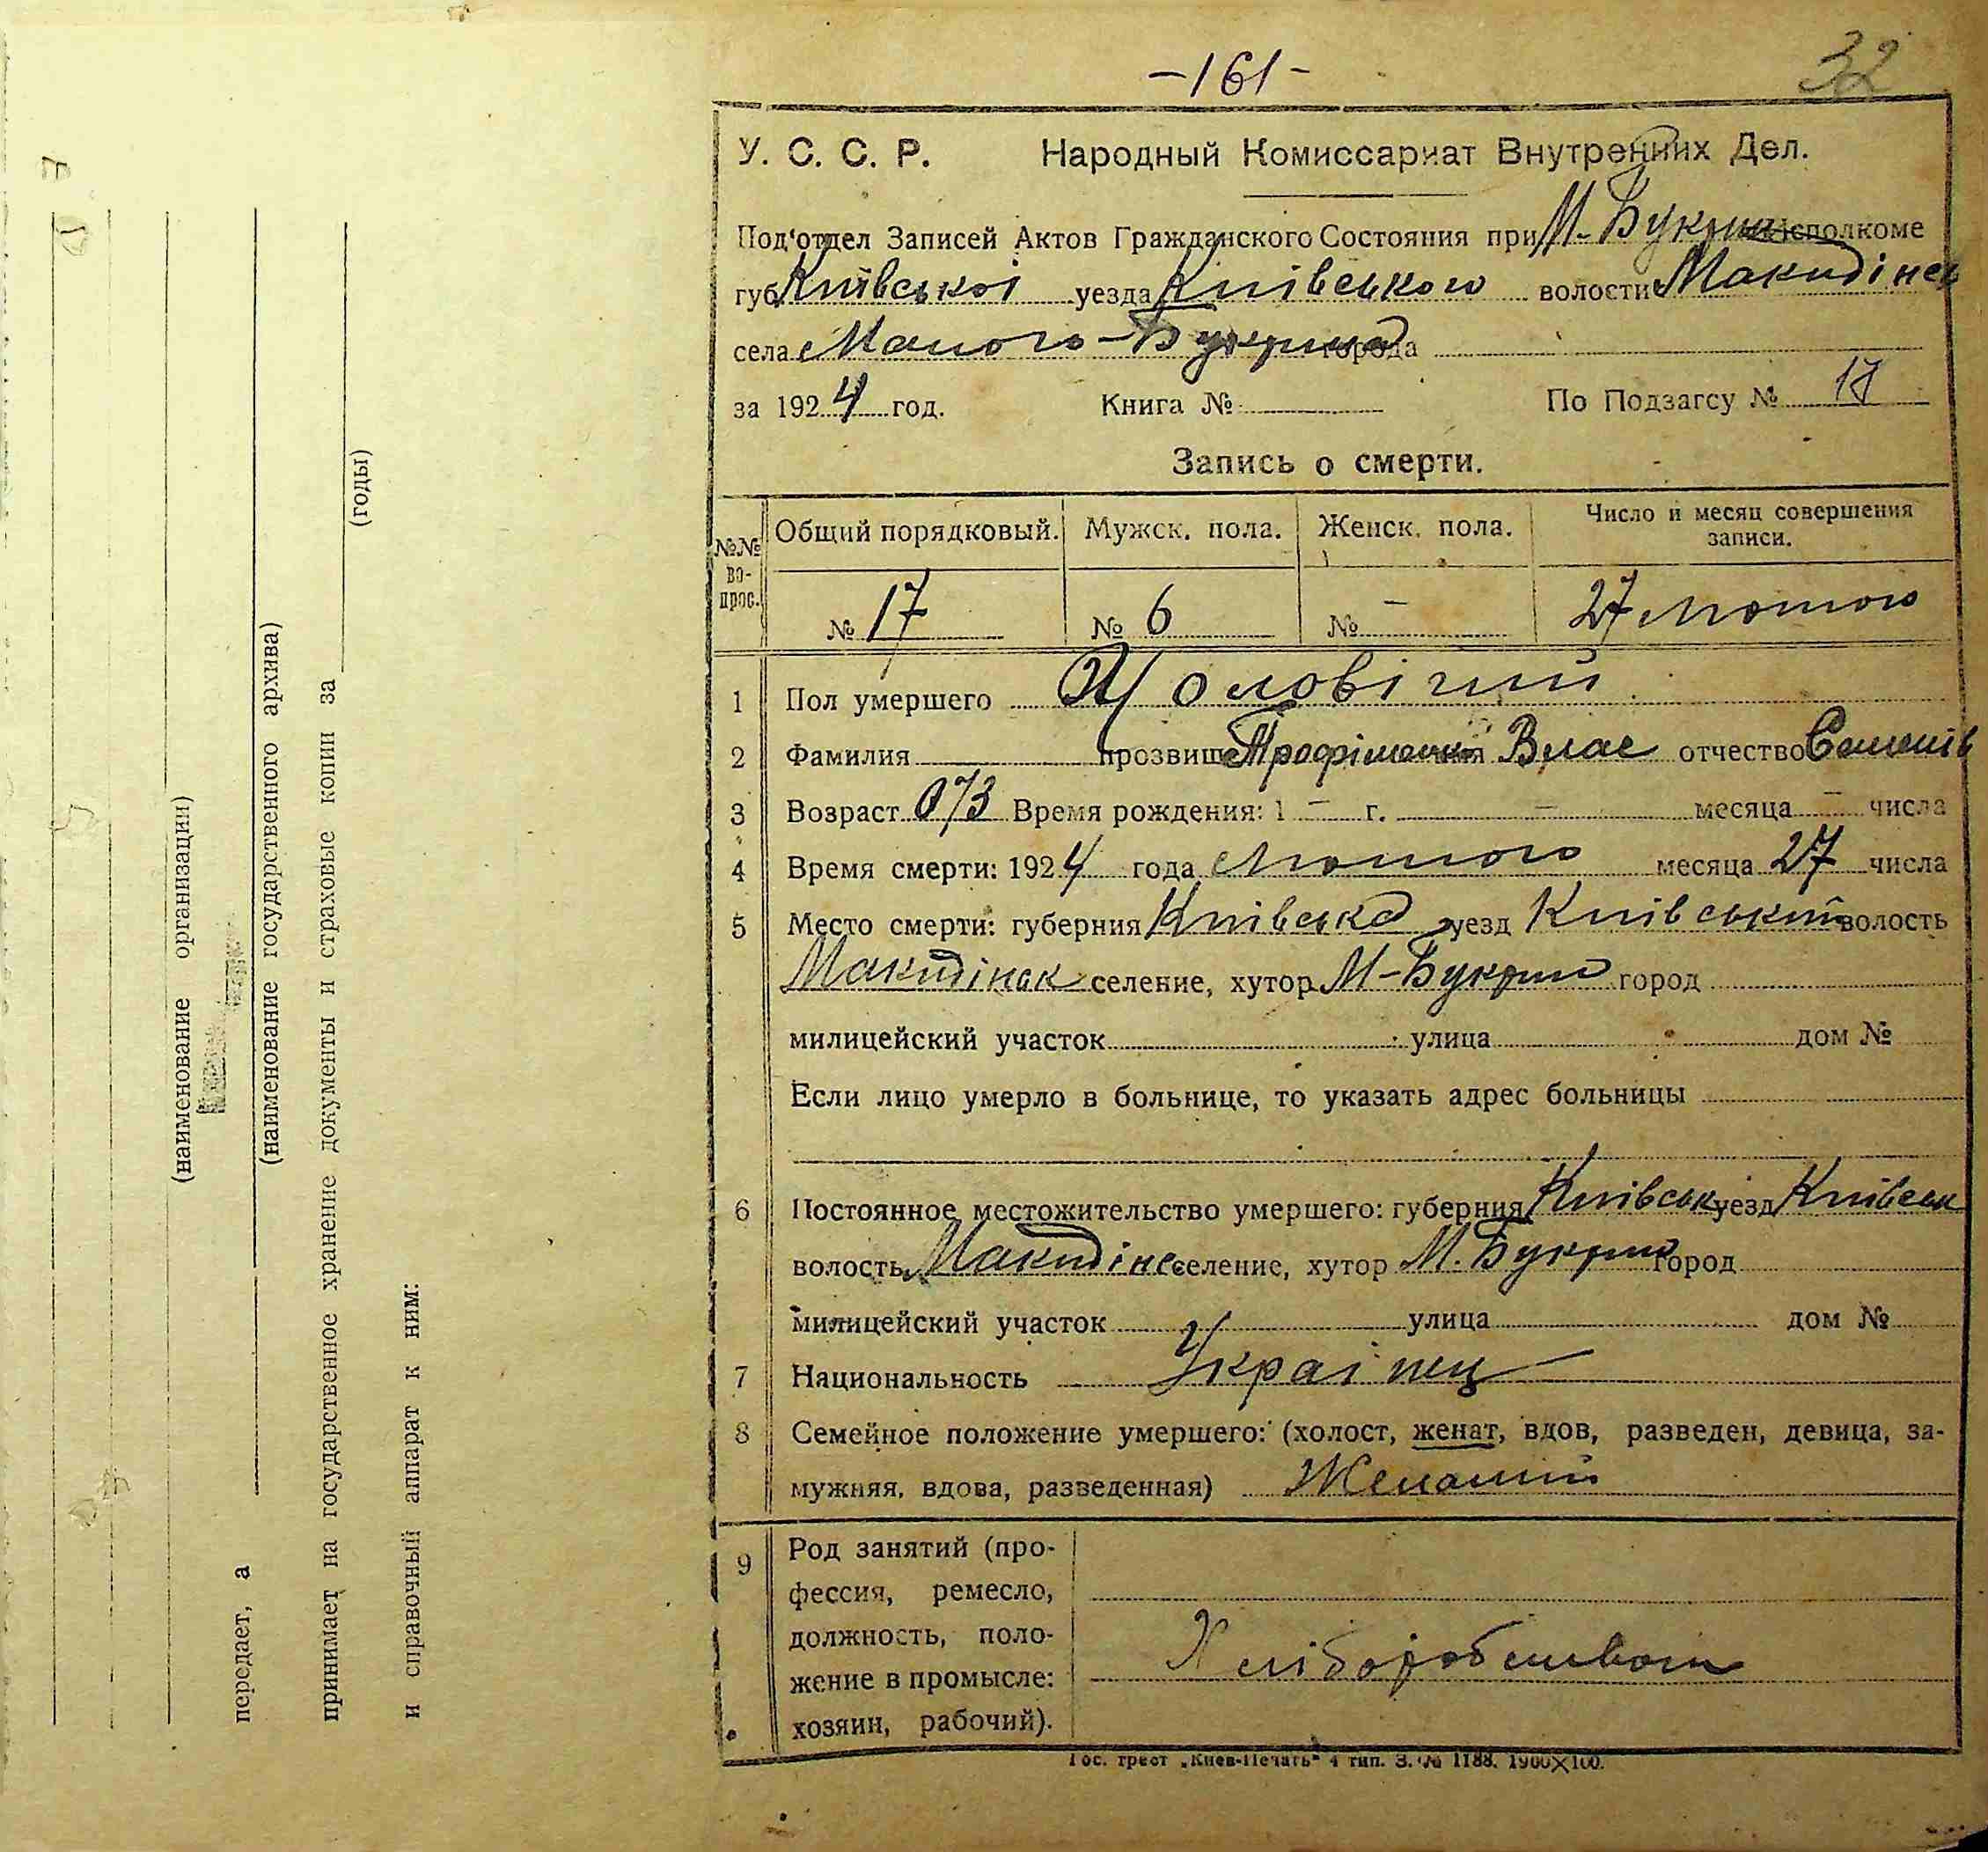 -161-
32
У. С. С. Р. Народный Комиссариат Внутренних Дел.
Под'отдел Записей Актов Гражданского Состояния при М-Букрин исполкоме
губ Київської уезда Київського волости Макидінськ
села Малого-Букрина города
за 1924 год. Книга № По Подзагсу № 17
Запись о смерти.
№№ во-прос. Общий порядковый. Мужск. пола. Женск. пола. Число и месяц совершения записи.
№ 17 № 6 № — 27 лютого
1 Пол умершего Чоловічий
2 Фамилия прозвище Трофіменко имя Влас отчество Семенів
3 Возраст 73 Время рождения: 1 — г. — месяца — числа
4 Время смерти: 1924 года лютого месяца 27 числа
5 Место смерти: губерния Київська уезд Київський волость
Макидінск селение, хутор М-Букрин город
милицейский участок улица дом №
Если лицо умерло в больнице, то указать адрес больницы
6 Постоянное местожительство умершего: губерния Київськ уезд Київськ
волость Макидінс селение, хутор М. Букрин город
милицейский участок улица дом №
7 Национальность Українец
8 Семейное положение умершего: (холост, женат, вдов, разведен, девица, за-
мужняя, вдова, разведенная) Женатий
9 Род занятий (про-
фессия, ремесло,
должность, поло-
жение в промысле:
хозяин, рабочий).
Хліборобством
Гос. трест „Киев-Печать" 4 тип. З. № 1188. 1900×100.
(наименование организации)
передает, а
(наименование государственного архива)
принимает на государственное хранение документы и страховые копии за
(годы)
и справочный аппарат к ним: